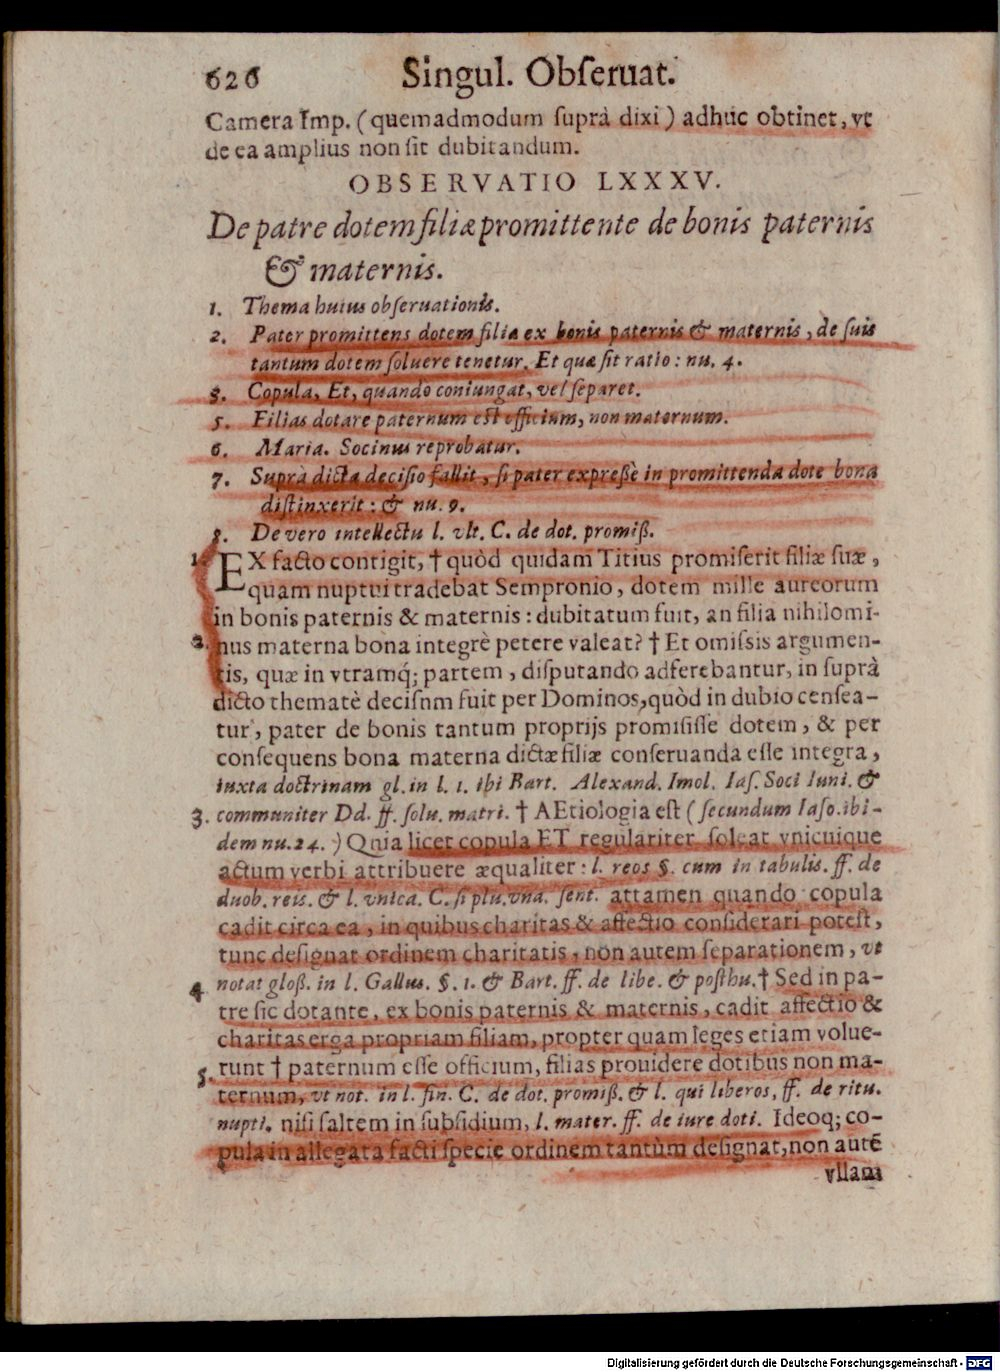 626 Singul. Obſeruat.
Camera Imp. (quemadmodum ſuprà dixi) adhuc obtinet, vt
de ea amplius non ſit dubitandum.
OBSERVATIO LXXXV.
De patre dotem filiæ promittente de bonis paternis
& maternis.
1. Thema huius obſeruationis.
2. Pater promittens dotem filiæ ex bonis paternis & maternis, de ſuis
tantum dotem ſoluere tenetur. Et quæ ſit ratio: nu. 4.
3. Copula, Et, quando coniungat, vel ſeparet.
5. Filias dotare paternum eſt officium, non maternum.
6. Maria. Socinus reprobatur.
7. Suprà dicta deciſio fallit, ſi pater expreßè in promittenda dote bona
diſtinxerit: & nu. 9.
8. De vero intellectu l. vlt. C. de dot. promiß.
1. EX facto contigit, † quòd quidam Titius promiſerit filiæ ſuæ,
quam nuptui tradebat Sempronio, dotem mille aureorum
in bonis paternis & maternis: dubitatum fuit, an filia nihilomi-
2. nus materna bona integrè petere valeat? † Et omiſsis argumen-
tis, quæ in vtramq́; partem, diſputando adferebantur, in ſuprà
dicto thematè deciſum fuit per Dominos, quòd in dubio cenſea-
tur, pater de bonis tantum proprijs promiſiſſe dotem, & per
conſequens bona materna dictæ filiæ conſeruanda eſſe integra,
iuxta doctrinam gl. in l. 1. ibi Bart. Alexand. Imol. Iaſ. Soci Iuni. &
3. communiter Dd. ff. ſolu. matri. † AEtiologia eſt (ſecundum Iaſo. ibi-
dem nu. 24.) Quia licet copula ET regulariter ſoleat vnicuique
actum verbi attribuere æqualiter: l. reos §. cum in tabulis. ff. de
duob. reis. & l. vnica. C. ſi plu. vna. ſent. attamen quando copula
cadit circa ea, in quibus charitas & affectio conſiderari poteſt,
tunc deſignat ordinem charitatis, non autem ſeparationem, vt
4. notat gloß. in l. Gallus. §. 1. & Bart. ff. de libe. & poſthu. † Sed in pa-
tre ſic dotante, ex bonis paternis & maternis, cadit affectio &
charitas erga propriam filiam, propter quam leges etiam volue-
5. runt † paternum eſſe officium, filias prouidere dotibus non ma-
ternum, vt not. in l. fin. C. de dot. promiß. & l. qui liberos, ff. de ritu.
nupti. niſi ſaltem in ſubſidium, l. mater. ff. de iure doti. Ideoq; co-
pula in allegata facti ſpecie ordinem tantùm deſignat, non autē
vllam
Digitalisierung gefördert durch die Deutsche Forschungsgemeinschaft - DFG